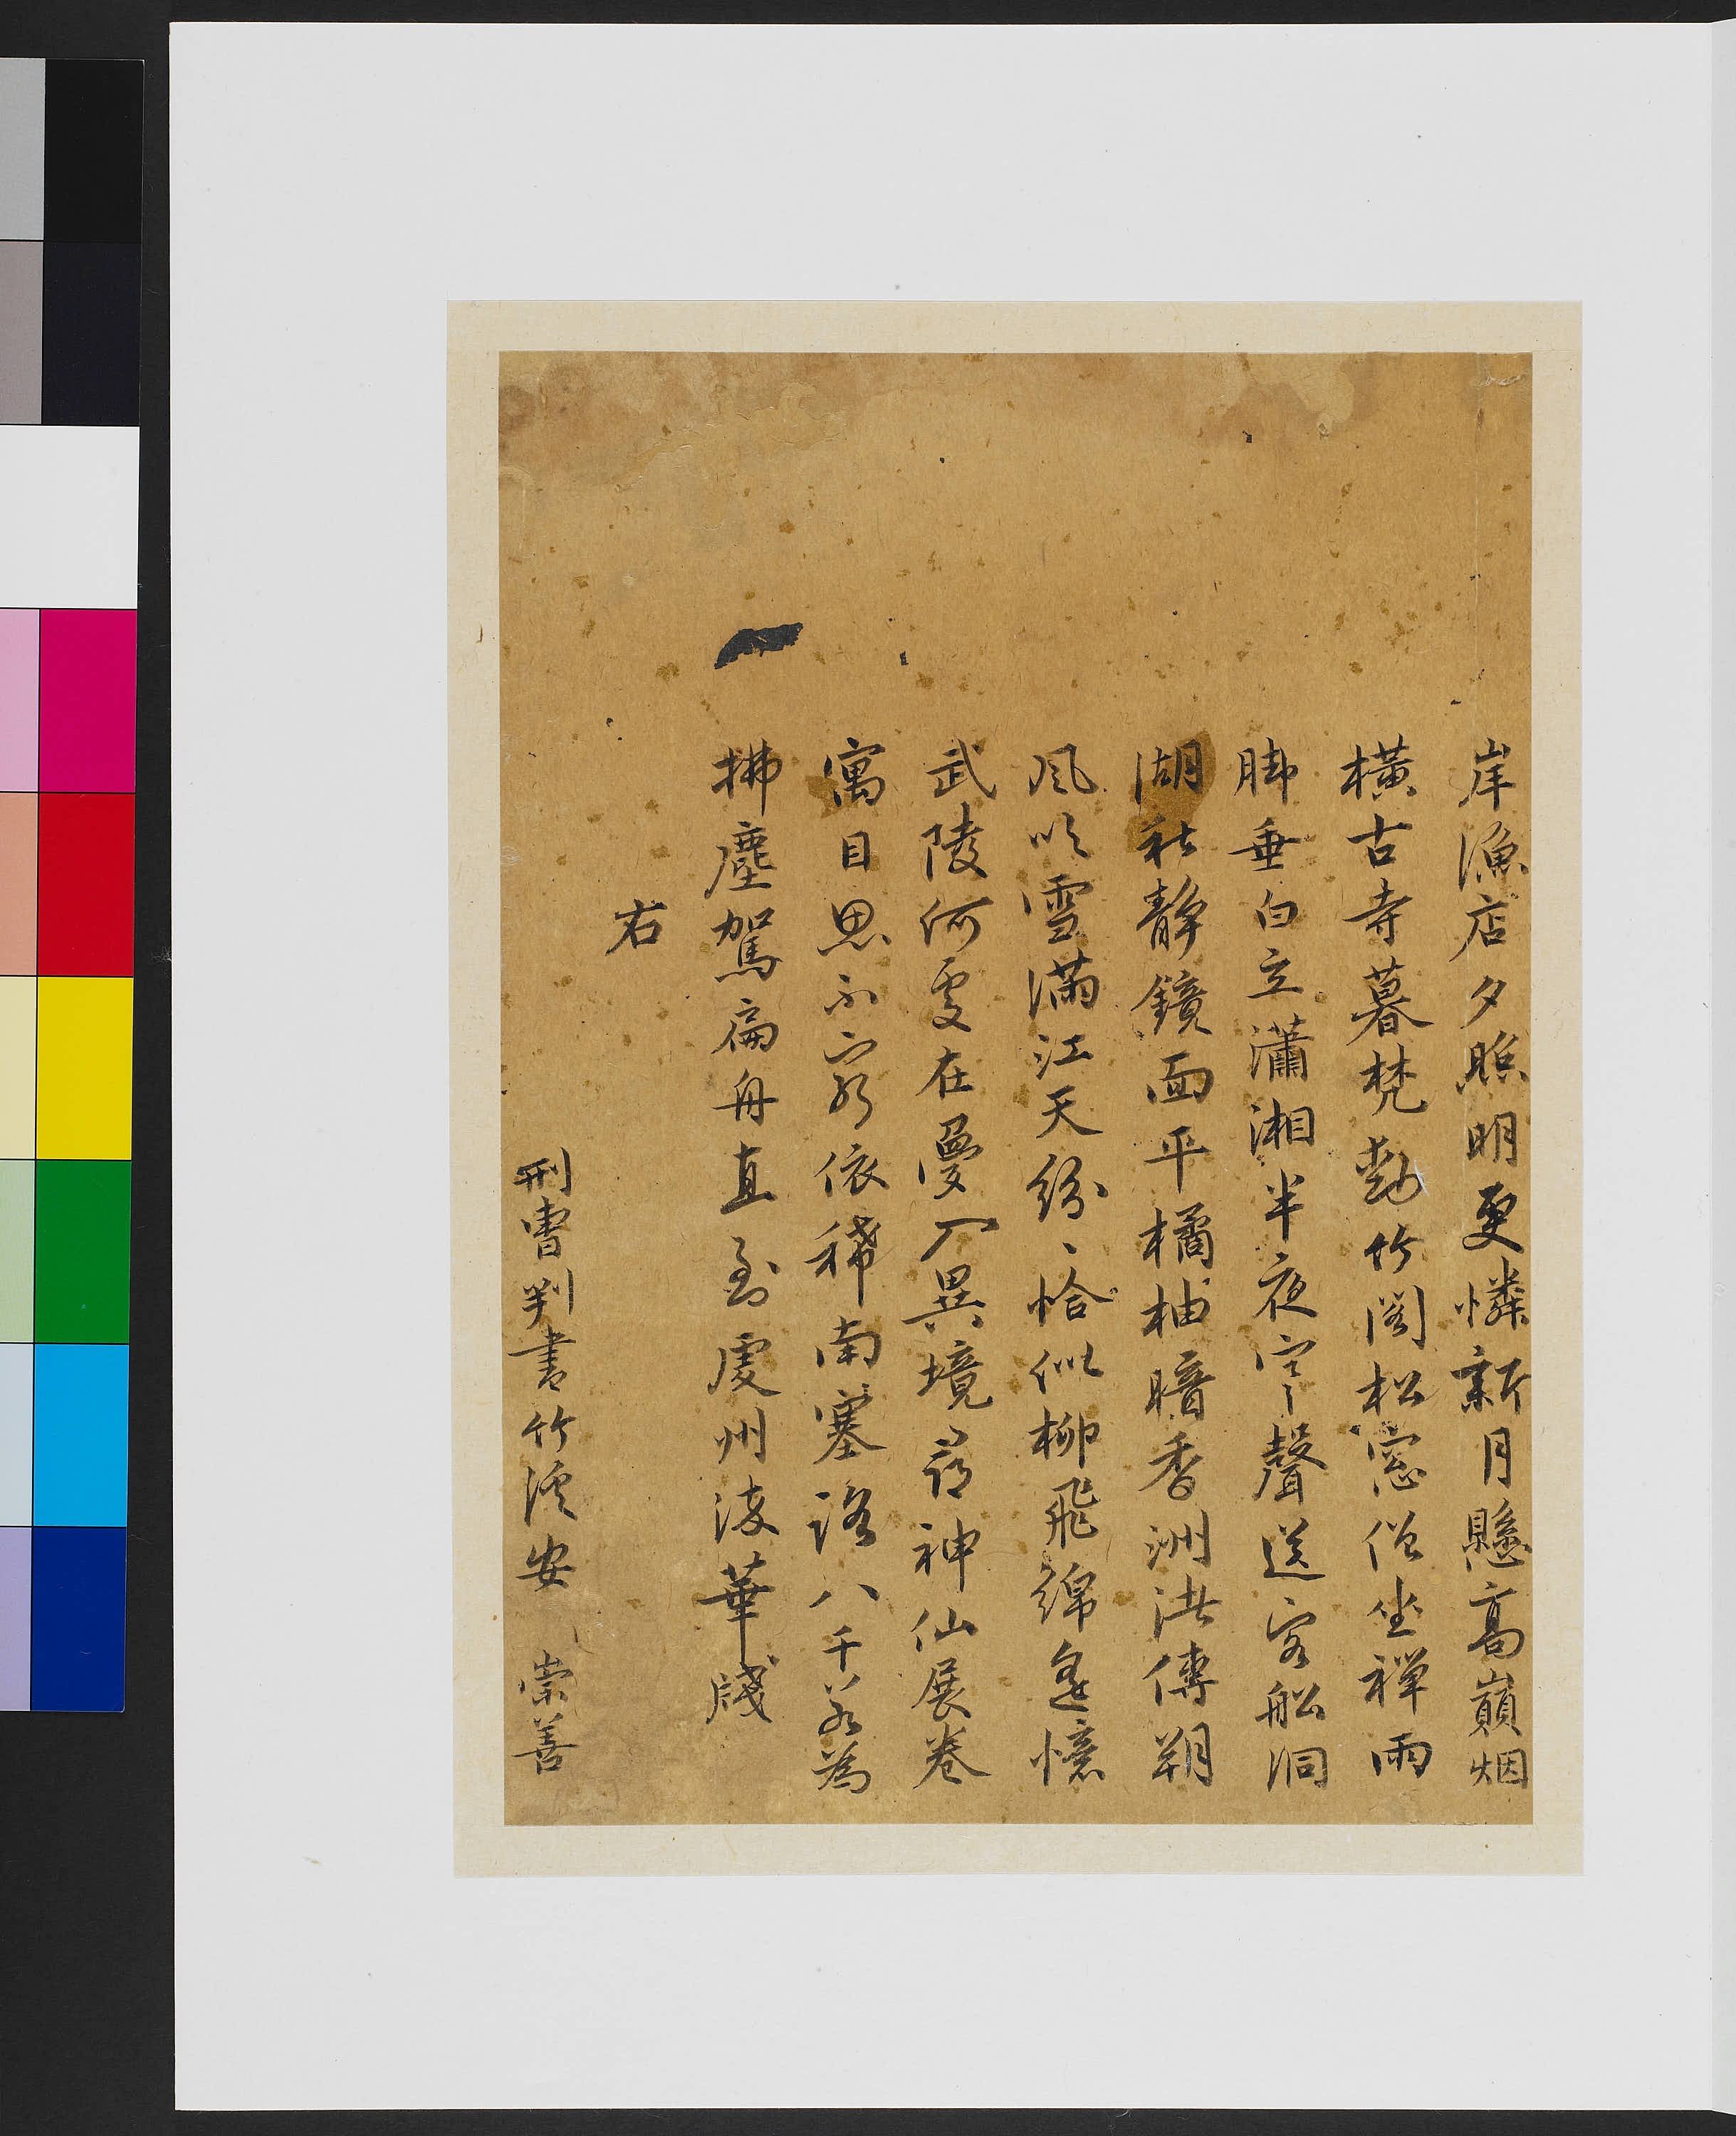 岸漁店夕照明更憐新月懸高巔烟
橫古寺暮梵動竹閣松窓僧坐禪雨
脚垂白立瀟湘半夜寒聲送客船洞
湖秋靜鏡面平橘柚暗香洲渚傳朔
風吹雪滿江天紛、恰似柳飛綿遙憶
武陵何處在漫入異境尋神仙展卷
寓目思不窮依稀南塞路八千若為
拂塵駕扁舟直到處州淩華牋
右
刑曹判書竹溪安 崇善